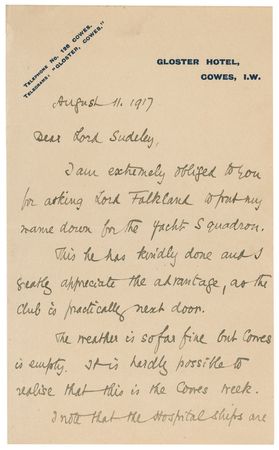 TELEPHONE NO. 198 COWES.
TELEGRAMS: "GLOSTER, COWES."
GLOSTER HOTEL,
COWES, I.W.
August 11. 1917
Dear Lord Sudeley,
I am extremely obliged to you
for asking Lord Falkland to put my
name down for the Yacht Squadron.
This he has kindly done and I
greatly appreciate the advantage, as the
Club is practically next door.
The weather is so far fine but Cowes
is empty. It is hardly possible to
realise that this is the Cowes week.
I note that the Hospital Ships are